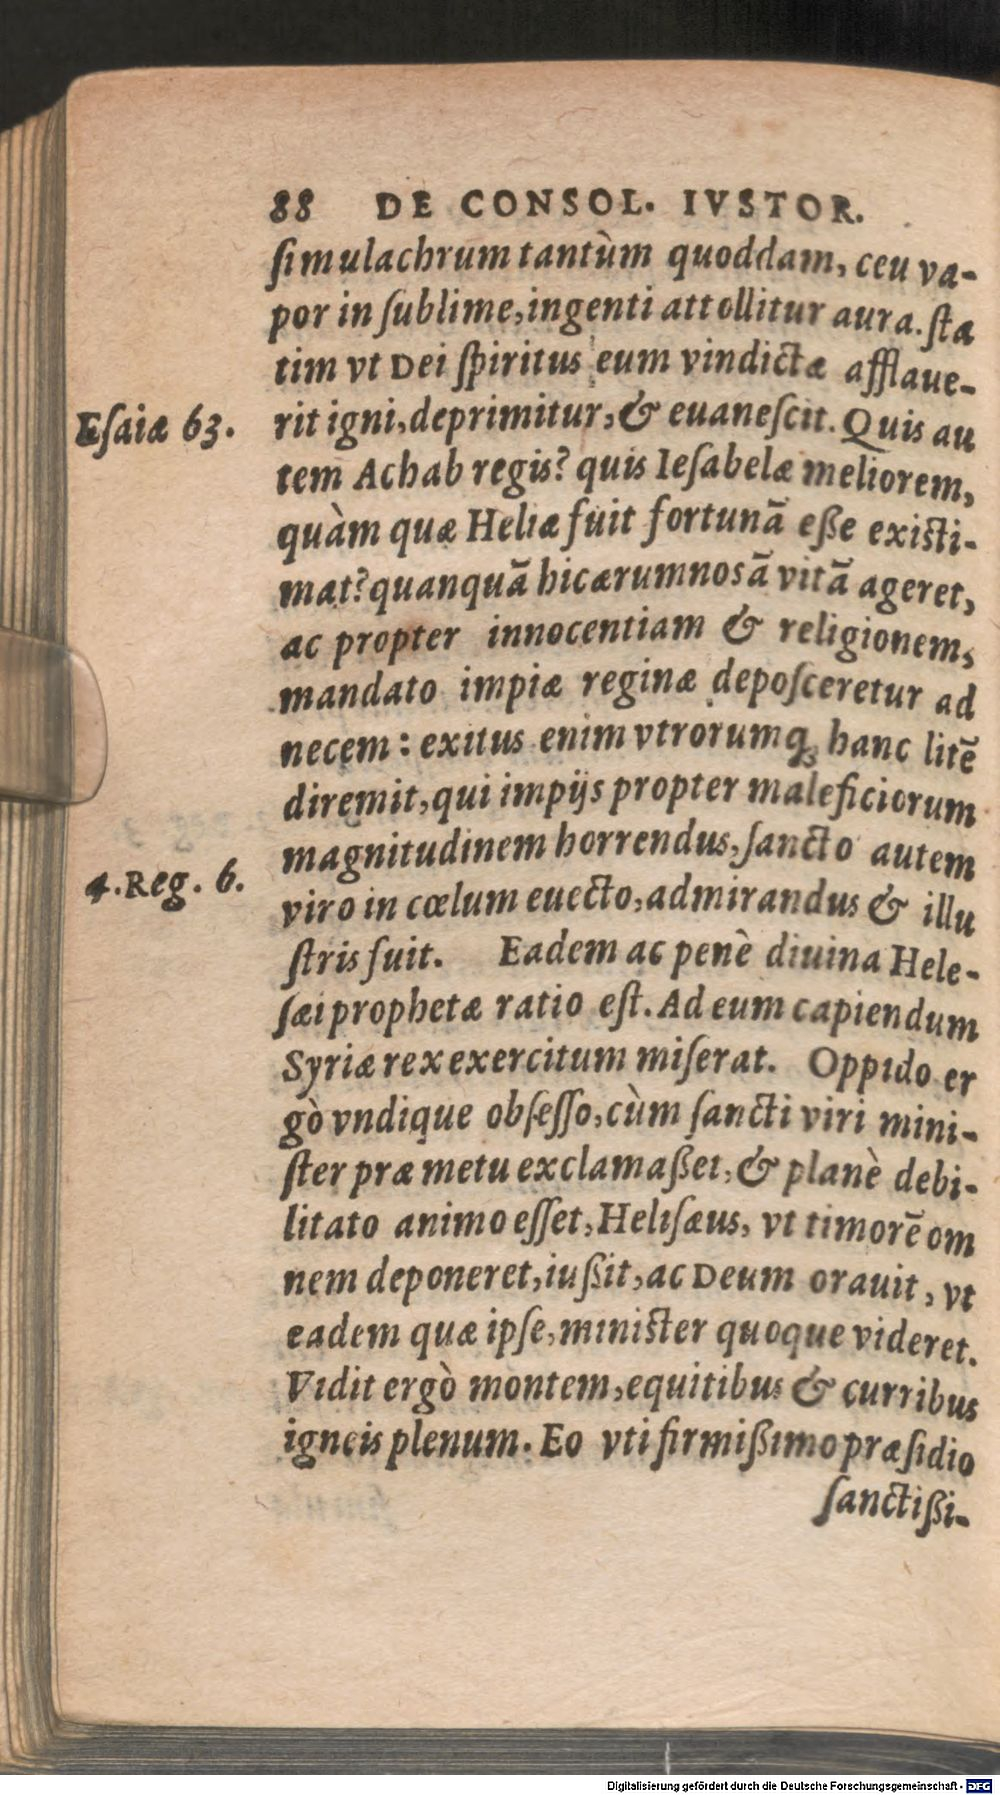 88 DE CONSOL. IVSTOR.
ſimulachrum tantùm quoddam, ceu va-
por in ſublime, ingenti attollitur aura. ſta
tim vt Dei ſpiritus eum vindictæ afflaue-
Eſaiæ 63.
rit igni, deprimitur, & euaneſcit. Quis au
tem Achab regis? quis Ieſabelæ meliorem,
quàm quæ Heliæ fuit fortunã eße existi-
mat? quanquã hic ærumnosã vitã ageret,
ac propter innocentiam & religionem,
mandato impiæ reginæ depoſceretur ad
necem: exitus enim vtrorumq; hanc litẽ
diremit, qui impijs propter maleficiorum
magnitudinem horrendus, ſancto autem
4. Reg. 6.
viro in cœlum euecto, admirandus & illu
ſtris fuit. Eadem ac penè diuina Hele-
ſæi prophetæ ratio eſt. Ad eum capiendum
Syriæ rex exercitum miſerat. Oppido er
gò vndique obſeſſo, cùm ſancti viri mini-
ſter præ metu exclamaßet, & planè debi-
litato animo eſſet, Heliſæus, vt timorẽ om
nem deponeret, iußit, ac Deum orauit, vt
eadem quæ ipſe, minister quoque videret.
Vidit ergò montem, equitibus & curribus
igneis plenum. Eo vti firmißimo præſidio
ſanctißi-
Digitalisierung gefördert durch die Deutsche Forschungsgemeinschaft - DFG